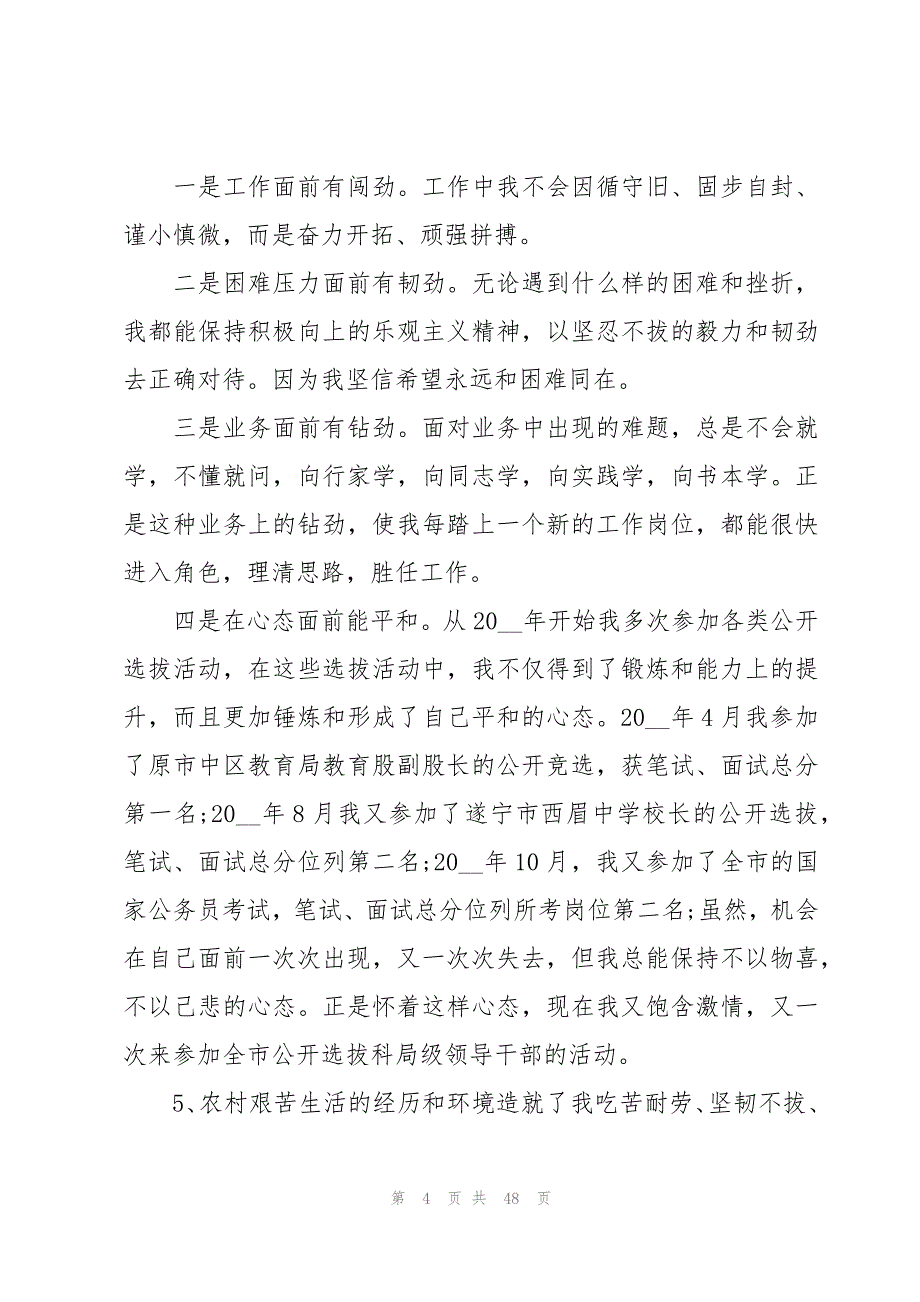 一是工作面前有闯劲。工作中我不会因循守旧、固步自封、
谨小慎微，而是奋力开拓、顽强拼搏。
二是困难压力面前有韧劲。无论遇到什么样的困难和挫折，
我都能保持积极向上的乐观主义精神，以坚忍不拔的毅力和韧劲
去正确对待。因为我坚信希望永远和困难同在。
三是业务面前有钻劲。面对业务中出现的难题，总是不会就
学，不懂就问，向行家学，向同志学，向实践学，向书本学。正
是这种业务上的钻劲，使我每踏上一个新的工作岗位，都能很快
进入角色，理清思路，胜任工作。
四是在心态面前能平和。从 20__年开始我多次参加各类公开
选拔活动，在这些选拔活动中，我不仅得到了锻炼和能力上的提
升，而且更加锤炼和形成了自己平和的心态。20__年 4 月我参加
了原市中区教育局教育股副股长的公开竞选，获笔试、面试总分
第一名;20__年 8 月我又参加了遂宁市西眉中学校长的公开选拔，
笔试、面试总分位列第二名;20__年 10 月，我又参加了全市的国
家公务员考试，笔试、面试总分位列所考岗位第二名;虽然，机会
在自己面前一次次出现，又一次次失去，但我总能保持不以物喜，
不以己悲的心态。正是怀着这样心态，现在我又饱含激情，又一
次来参加全市公开选拔科局级领导干部的活动。
5、农村艰苦生活的经历和环境造就了我吃苦耐劳、坚韧不拔、
第 4 页 共 48 页